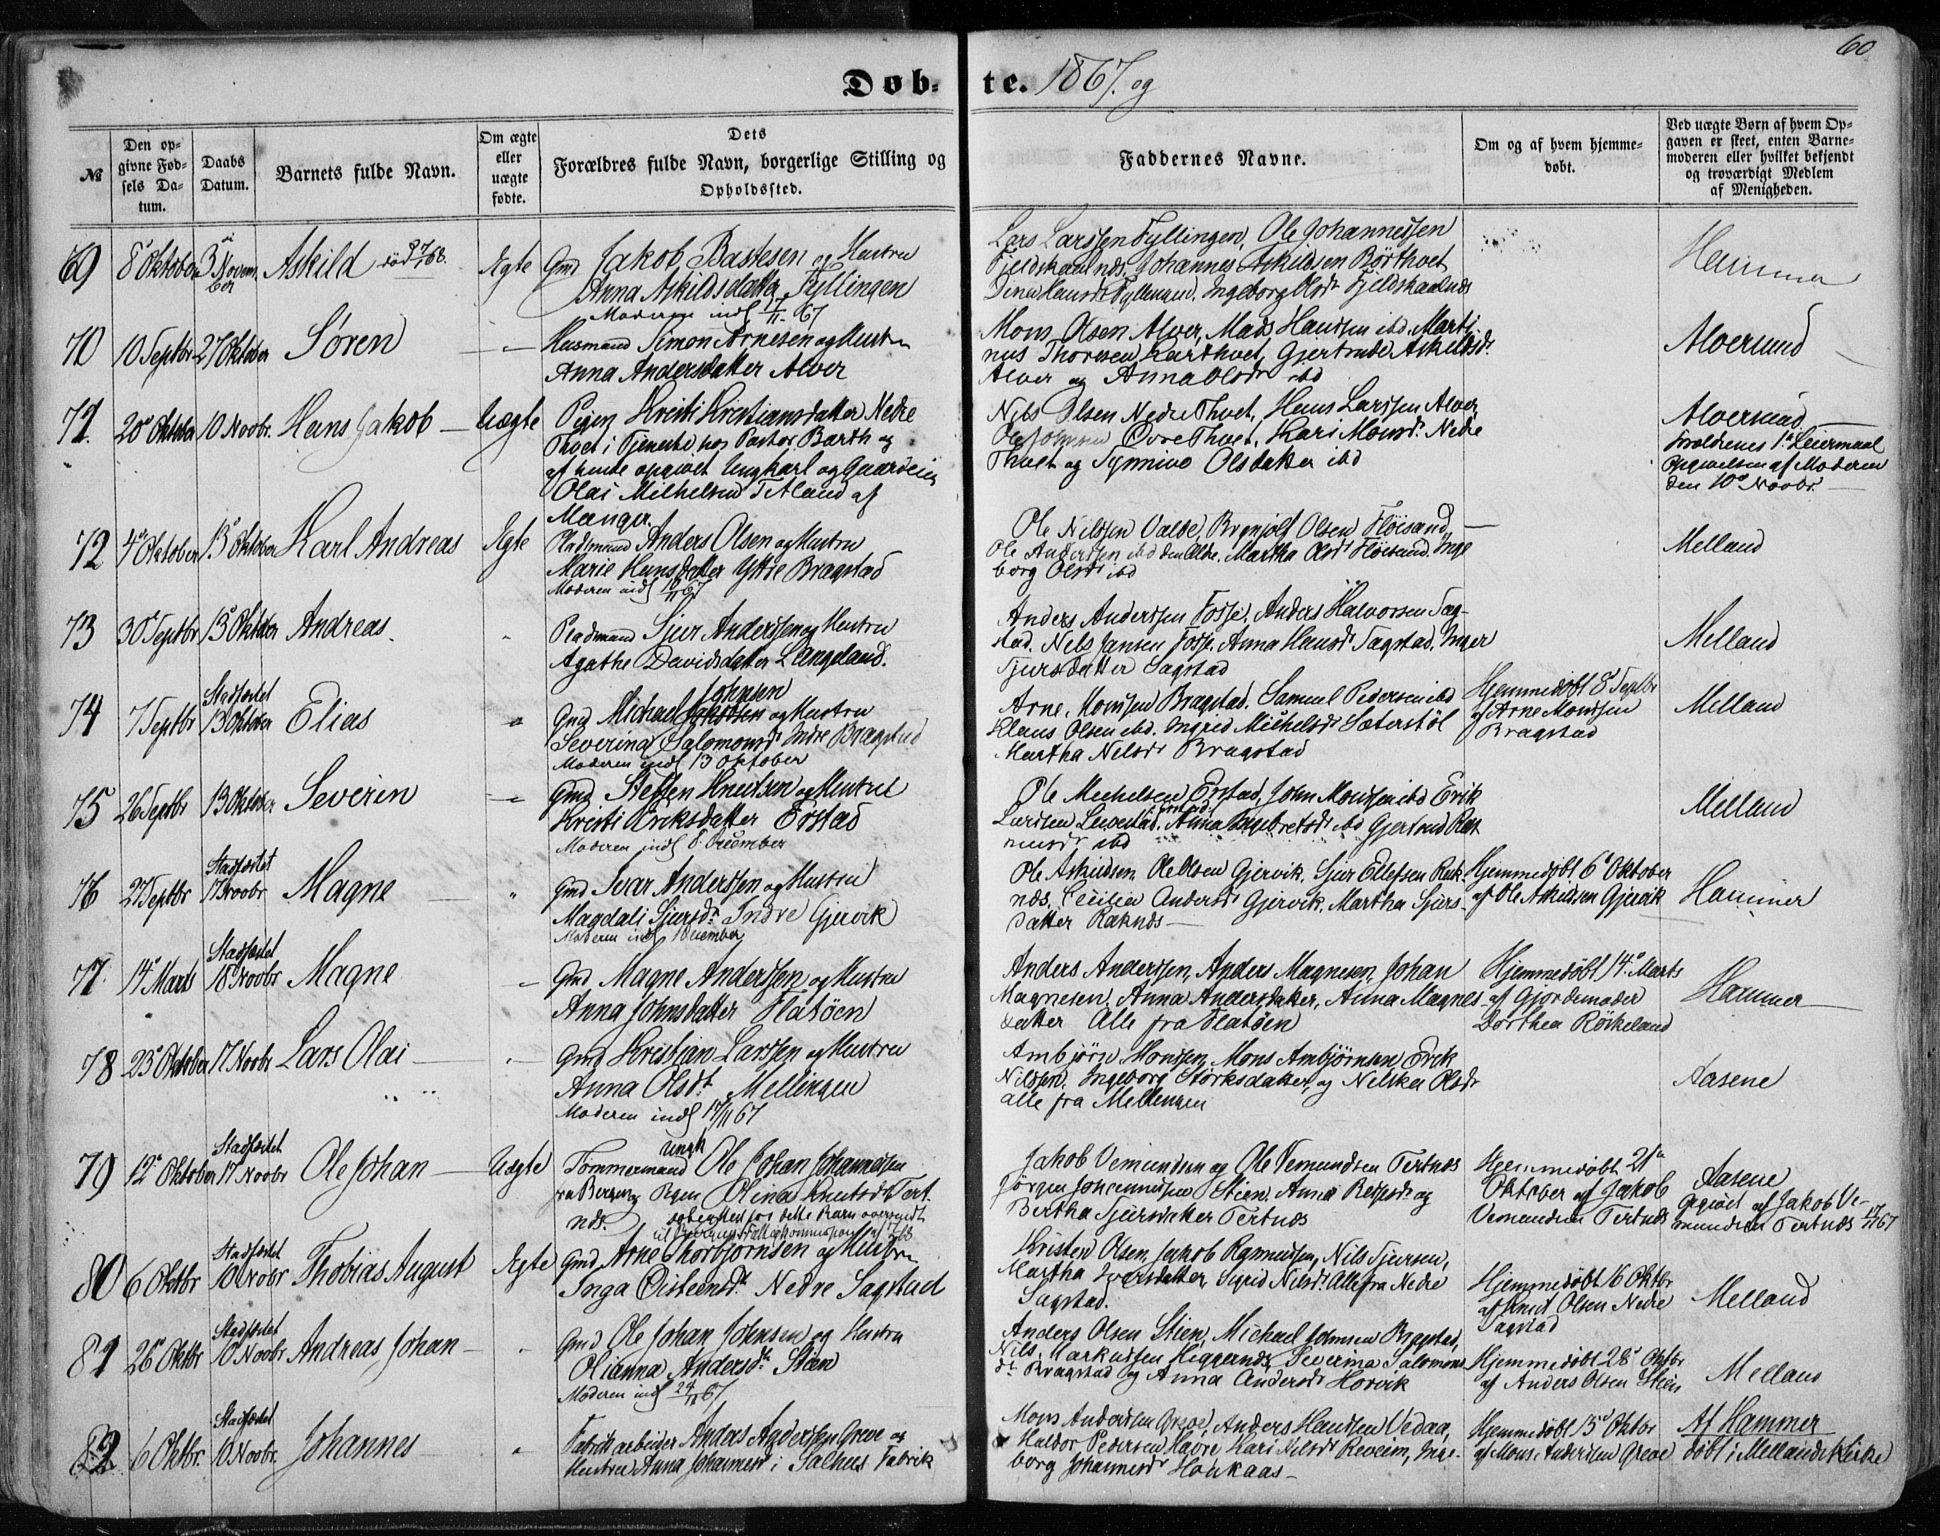 60
Døb- te. 1867. og
№
Den op-
givne Fød-
sels Da-
tum.
Daabs
Datum.
Barnets fulde Navn.
Om ægte
eller
uægte
fødte.
Dets
Forældres fulde Navn, borgerlige Stilling og
Opholdssted.
Faddernes Navne.
Om og af hvem hjemme-
døbt.
Ved uægte Børn af hvem Op-
gaven er skeet, enten Barne-
moderen eller hvilket bekjendt
og troværdigt Medlem
af Menigheden.
69 8 Oktober 3 Novem-
ber Askild Ægte Gmd Jakob Bastesen og Hustru
Anna Askildsdatter Fyllingen
Moderen indl
Lars Larssen Fyllingen, Ole Johannessen
Fjeldskaalnds. Johannes Askildsen Börthvet
Hammer
70 10 Septbr 27 Oktober Søren
Husmand Simon Arnesen og Hustru
Anna Andersdatter Alver
Mons Olsen Alver, Mads Hansen ibd. Marti-
nus Thoresen Karthvet, Gjertrude Askildsdr
Alver og Anna Olsdr ibd
Alversund
71. 20 Oktober 10 Novbr. Hans Jakob Uægte Pigen Kristi Kristiansdatter Nedre
Thvet i Tjeneste hos Pastor Barth og
af hende opgivet Ungkarl og Gaardeier
Olai Mikkelsen Titland af
Manger.
Nils Olsen Nedre Thvet, Hans Larssen Alver,
Ole Johnsen Øvre Thvet, Kari Monsdr Nedre
Thvet og Synnive Olsdatter ibd
Alversund
Forældrenes 1ste Leiermaal
Opgivelsen af Moderen
den 10de Novbr.
72 4 Oktober 13 Oktober Karl Andreas Ægte Pladsmand Anders Olsen og Hustru
Marie Hansdatter Ytre Bragstad
Moderen indl
Ole Nilssen Valde, Brynjolf Olsen Fløisand,
Ole Anderssen ibd den Ældre, Martha Olsdr Fløisand, Inge-
borg Olsdr ibd
Melland
73 30 Septbr 13 Oktober Andreas.
Pladsmand Sjur Anderssen og Hustru
Agathe Davidsdatter Langeland.
Anders Anderssen Fosse, Anders Halvorsen Sag-
stad. Nils Jansen Fosse. Anna Hansdr Sagstad. Inger
Sjursdatter Sagstad
Melland
74 7 Septbr Stadfæstet
13 Oktober Elias
Gmd Michael Johnsen og Hustru
Severina Salomonsdr Indre Bragstad
Moderen indl 13 Oktober
Arne Monssen Bragstad. Samuel Pedersen ibd
Klaus Olsen ibd. Ingrid Michelsdr Sæterstöl
Martha Nilsdr Bragstad
Hjemmedøbt 8 Septbr
af Arne Monssen
Bragstad
Melland
75 26 Septbr 13 Oktober Severin
Gmd Steffen Knudsen og Hustru
Kristi Eriksdatter Erstad
Moderen indl 8 December
Ole Michelsen Erstad, John Monssen ibd Erik
Larssen
Melland
76 27 Septbr Stadfæstet
17 Novbr Magne
Gmd Ivar Anderssen og Hustru
Magdali Sjursdr Indre Gjervik
Moderen indl 1 December
Ole Askildsen, Ole Olsen Gjervik, Sjur Ellefsen Rak-
nds, Cecilia Andersdr Gjervik. Martha Sjurs-
datter Raknds
Hjemmedøbt 6 Oktober
af Ole Askildsen Gjervik
Hammer
77. 14 Marts Stadfæstet
18 Novbr Magne
Gmd Magne Anderssen og Hustru
Anna Johnsdatter Flatöen
Anders Anderssen, Anders Magnesen, Johan
Magnesen. Anna Andersdatter, Anna Magnes-
datter Alle fra Flatöen
Hjemmedøbt 14 Marts
af Gjordemoder
Dorthea Röikeland
Hammer
78 23 Oktober 17 Novbr Lars Olai
Gmd Kristian Larssen og Hustru
Anna Olsdr Mellingen
Moderen indl 17/11 67
Ambjörn Monssen, Mons Ambjörnsen, Erik
Nilssen. Ingeborg Störksdatter, og Nilska Olsdr
alle fra Mellingen
Aasene
79 12 Oktober Stadfæstet
17 Novbr Ole Johan Uægte Tømmermand Ungk. Ole Johan Johannessen
fra Bergen og Pigen Olina Knutsdr Tert-
nds.
Jakob Vemundsen og Ole Vemundsen Tertnds
Jørgen Johannessen Stien. Anna
Bertha Sjursdatter Tertnds
Hjemmedøbt 21de
Oktober af Jakob
Vemundsen Tertnds
Aasene
Opgivet af Jakob Ve-
mundsen Tertnds 17/11 67
80 6 Oktbr Stadfæstet
10 Novbr Thobias August Ægte Gmd Arne Thorbjørnsen og Hustru
Inga Øisteensdr Nedre Sagstad
Kristen Olsen, Jakob Rasmussen, Nils Sjursen,
Martha Iversdatter, Sigrid Nilsdr Alle fra Nedre
Sagstad.
Hjemmedøbt 16 Oktbr
af Knut Olsen Nedre
Sagstad
Melland
81 26 Oktbr Stadfæstet
10 Novbr Andreas Johan
Gmd Ole Johan Johnsen og Hustru
Olianna Andersdr Stien
Moderen indl 24/11 67
Anders Olsen Stien, Michael Johnsen Bragstad,
Nils Markussen Heggernds, Severina Salomons-
dr Bragstad og Anna Andersdr Hovik
Hjemmedøbt 28 Oktbr
af Anders Olsen Stien
Melland
82 6 Oktbr. Stadfæstet
10 Novbr. Johannes
Fabrikarbeider Anders Anderssen Greve og
Hustru Anna Johannesdr i Salhus Fabrik
Mons Anderssen Greve, Anders Hanssen Vedaa,
Haldor Pedersen Havre Kari Nilsdr Reveim, Inge-
borg Johannesdr Haukaas
Hjemmedøbt 15 Oktbr
af Mons Anderssen Greve
Af Hammer
døbt i Mellands Kirke